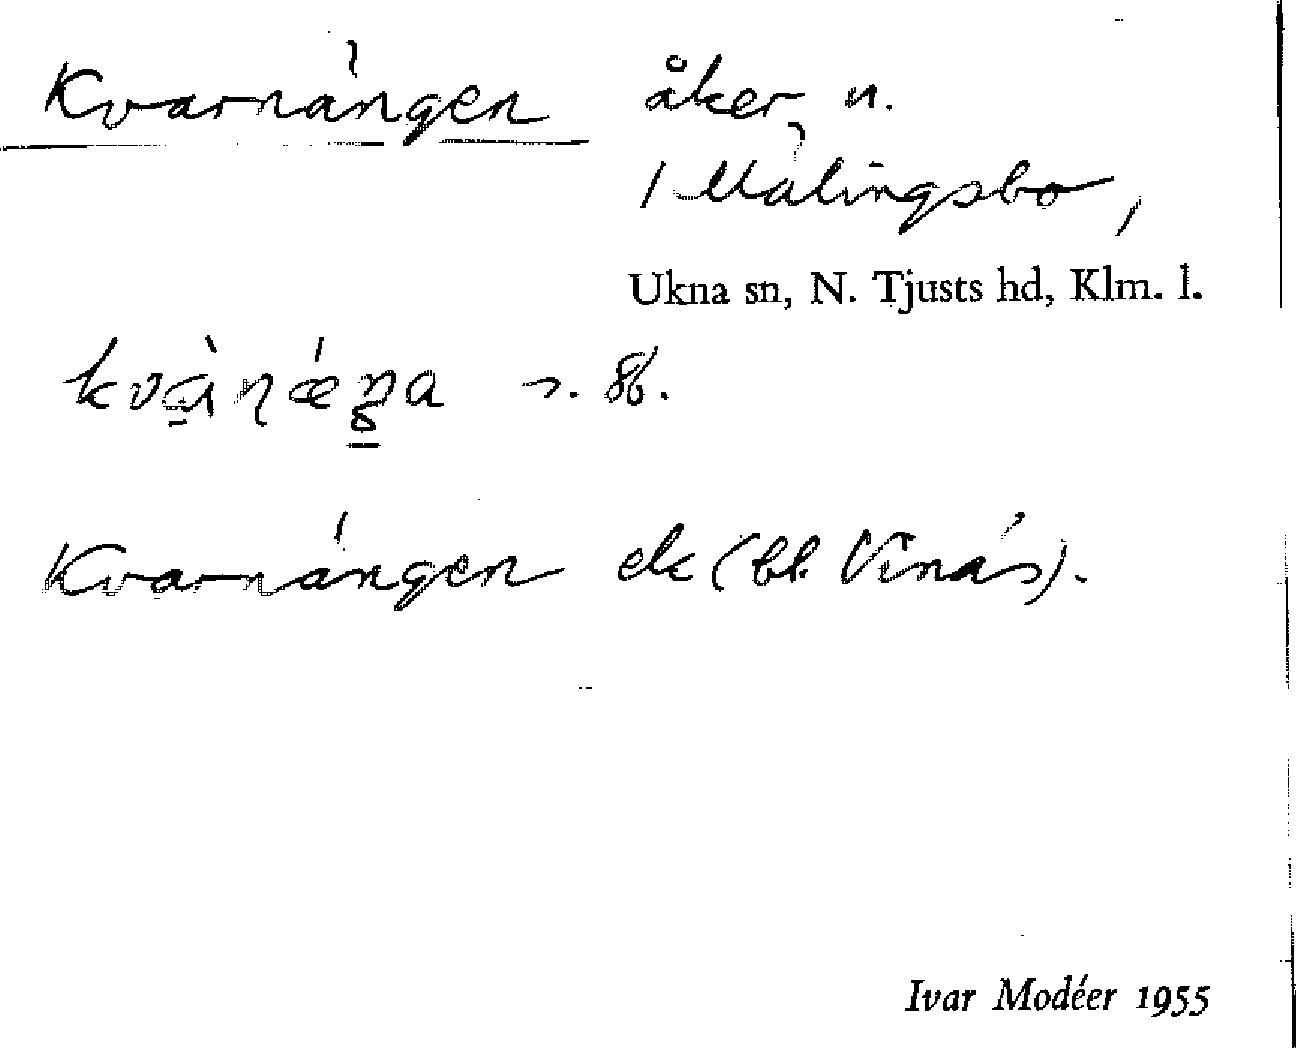 Kvarnängen åker, n.
/ Målingsbo,
Ukna sn, N. Tjusts hd, Klm. l.
kvàṇǽŋa s. sb.
Kvarnängen ek (bl. Vinås).
Ivar Modéer 1955